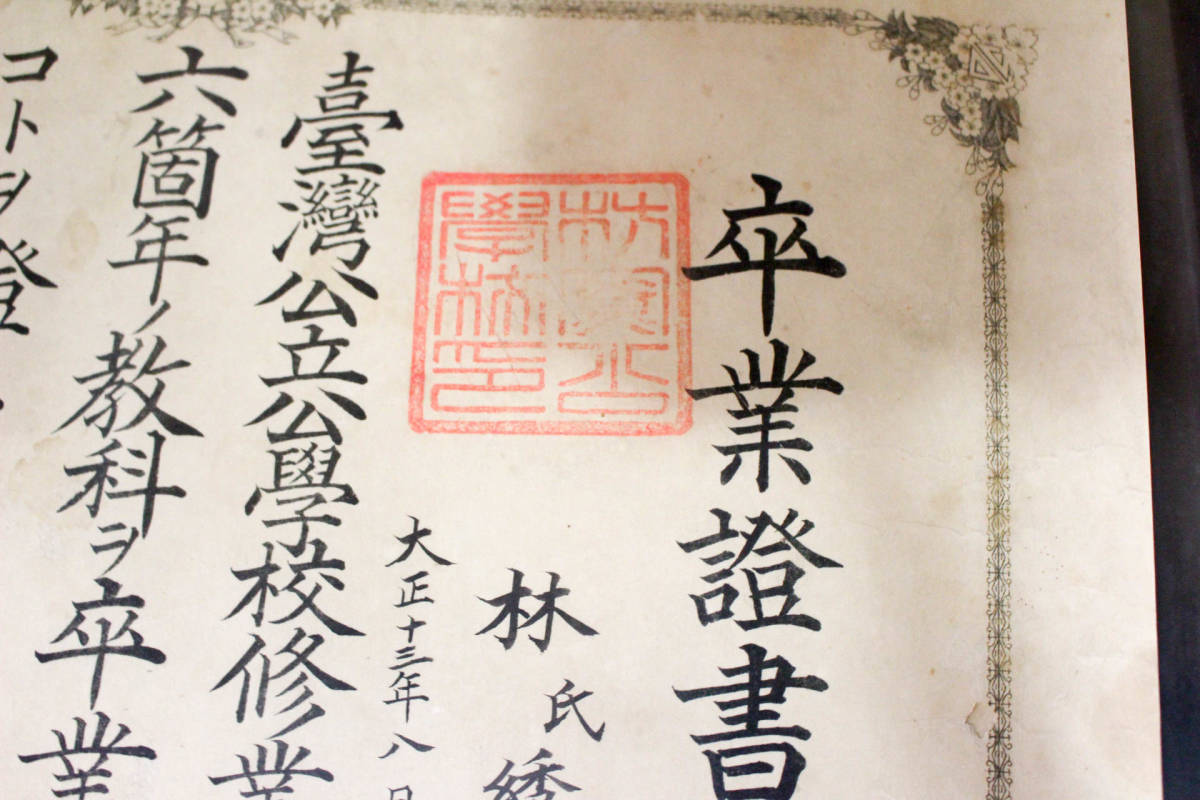 卒業證書
林氏綉
大正十三年八月
臺灣公立公學校修業
六箇年ノ教科ヲ卒業
コトヲ證
公
學校印